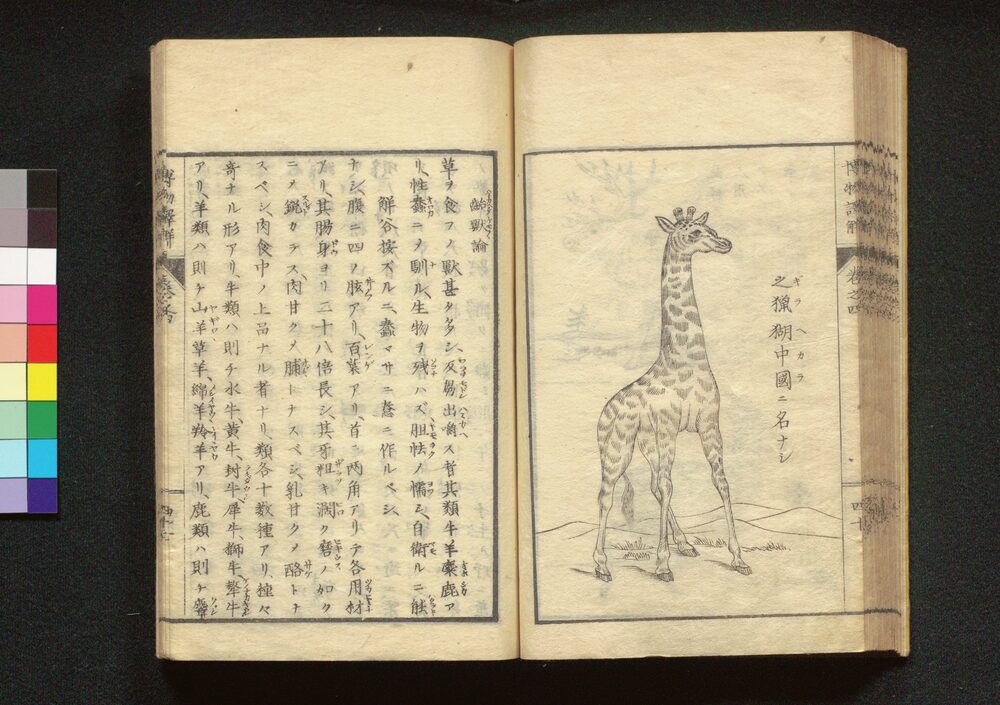 博物訳解
巻之四
四十
之猟猢中國ニ名ナシ
ギラヘカラ
齝獣論
草ヲ食フノ獣甚タ多シ、反芻出嚼ス者其類牛羊麋鹿ア
リ、性蠢ニメ馴ル、生物ヲ残ハズ胆怯ノ懦ニ、自衛ルニ
解谷按スルニ、蠢マサニ惷ニ作ルベシ
ナシ、腹ニ四ノ胲アリ、百葉アリ、首ニ両角アリテ各用材
アリ、其腸身ヨリ二十八倍長シ、其牙粗キ濶ク磨ノ如ク
ニメ鋭カラス、肉甘クメ脯トナスベシ、乳甘クメ酪トナ
スベシ、肉食中ノ上品ナル者ナリ、類各十数種アリ、種々
奇ナル形アリ、牛類ハ則チ水牛、黄牛、封牛、犀牛、獅牛、犛牛
アリ、羊類ハ則チ山羊草羊綿羊羚羊アリ、鹿類ハ則チ